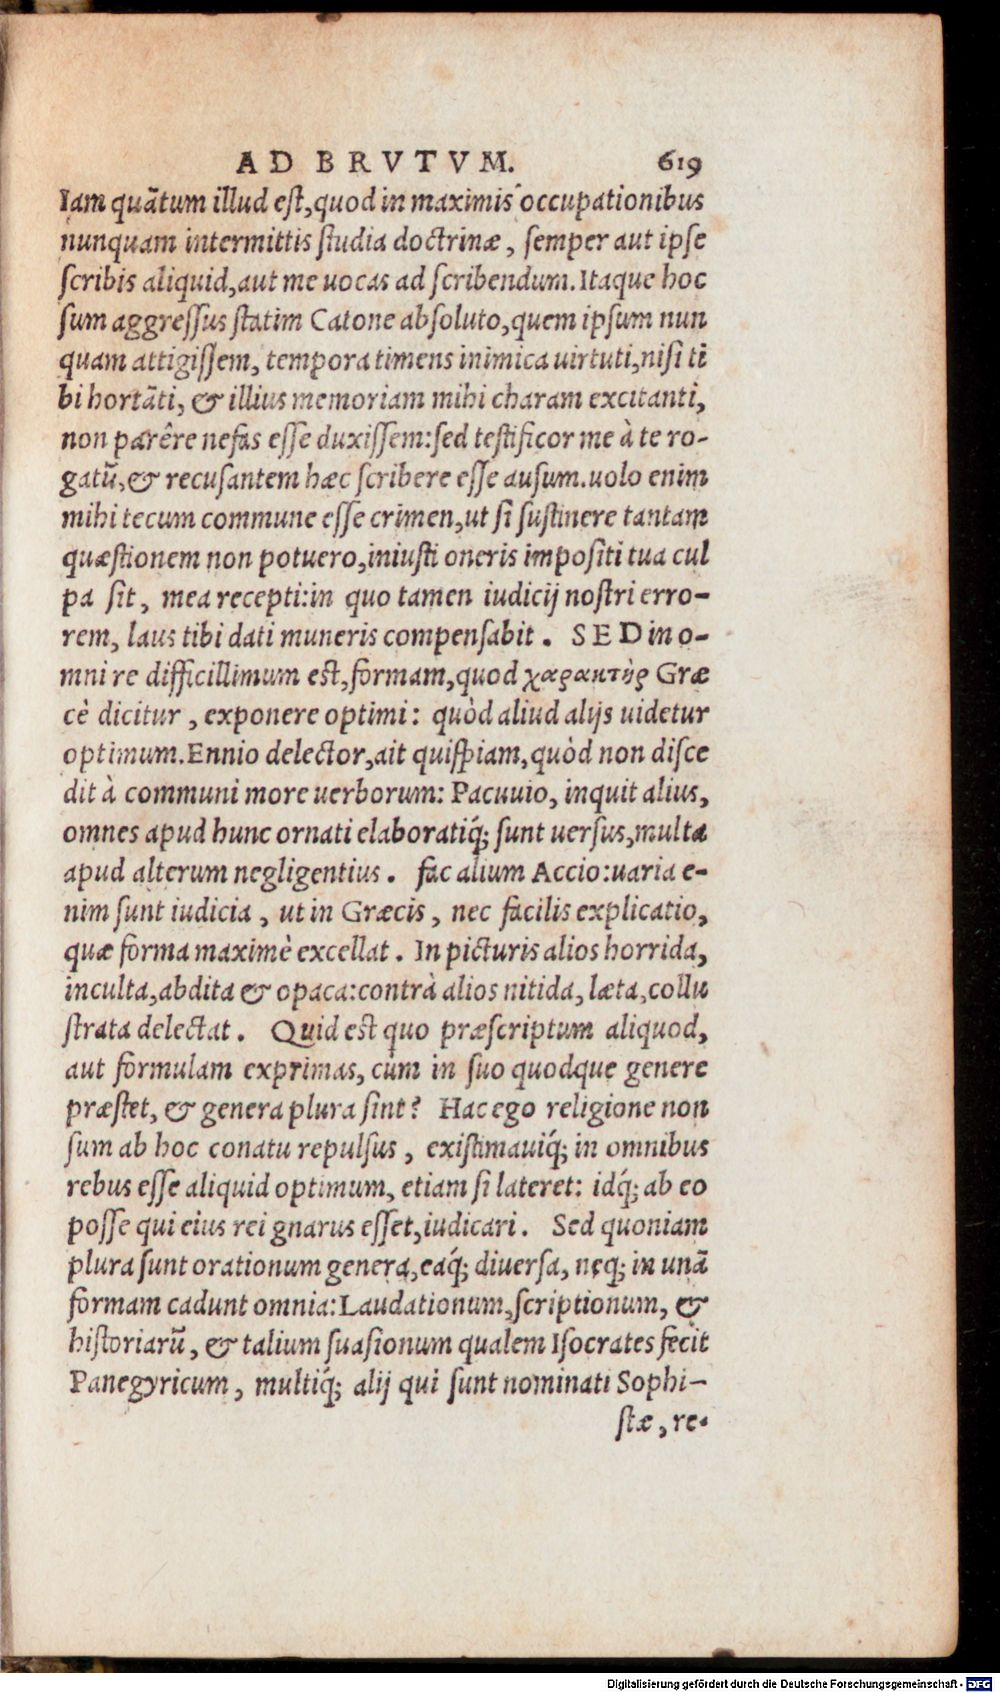 AD BRVTVM. 619
Iam quãtum illud est, quod in maximis occupationibus
nunquam intermittis studia doctrinæ, semper aut ipse
scribis aliquid, aut me uocas ad scribendum. Itaque hoc
sum aggressus statim Catone absoluto, quem ipsum nun
quam attigissem, tempora timens inimica uirtuti, nisi ti
bi hortãti, & illius memoriam mihi charam excitanti,
non parêre nefas esse duxissem: sed testificor me à te ro-
gatũ, & recusantem hæc scribere esse ausum. uolo enim
mihi tecum commune esse crimen, ut si sustinere tantam
quæstionem non potuero, iniusti oneris impositi tua cul
pa sit, mea recepti: in quo tamen iudicij nostri erro-
rem, laus tibi dati muneris compensabit. SED in o-
mni re difficillimum est, formam, quod χαρακτὴρ Græ
cè dicitur, exponere optimi: quòd aliud alijs uidetur
optimum. Ennio delector, ait quispiam, quòd non disce
dit à communi more uerborum: Pacuuio, inquit alius,
omnes apud hunc ornati elaboratiq́; sunt uersus, multa
apud alterum negligentius. fac alium Accio: uaria e-
nim sunt iudicia, ut in Græcis, nec facilis explicatio,
quæ forma maximè excellat. In picturis alios horrida,
inculta, abdita & opaca: contrà alios nitida, læta, collu
strata delectat. Quid est quo præscriptum aliquod,
aut formulam exprimas, cùm in suo quodque genere
præstet, & genera plura sint? Hac ego religione non
sum ab hoc conatu repulsus, existimauiq́; in omnibus
rebus esse aliquid optimum, etiam si lateret: idq́; ab eo
posse qui eius rei gnarus esset, iudicari. Sed quoniam
plura sunt orationum genera, eaq́; diuersa, neq; in unã
formam cadunt omnia: Laudationum, scriptionum, &
historiarũ, & talium suasionum qualem Isocrates fecit
Panegyricum, multiq́; alij qui sunt nominati Sophi-
stæ, re-
Digitalisierung gefördert durch die Deutsche Forschungsgemeinschaft - DFG